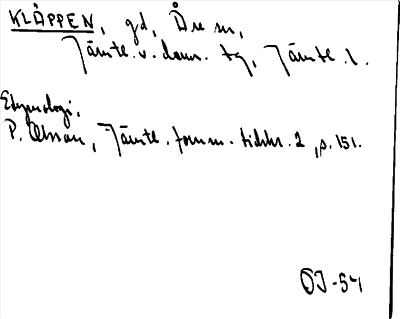 KLÄPPEN, gd, Åre sn,
Jämtl. v. doms. tg, Jämtl. l.
Etymologi.
P. Olsson, Jämtl. fornm. tidskr. 2, s. 151.
OJ-54